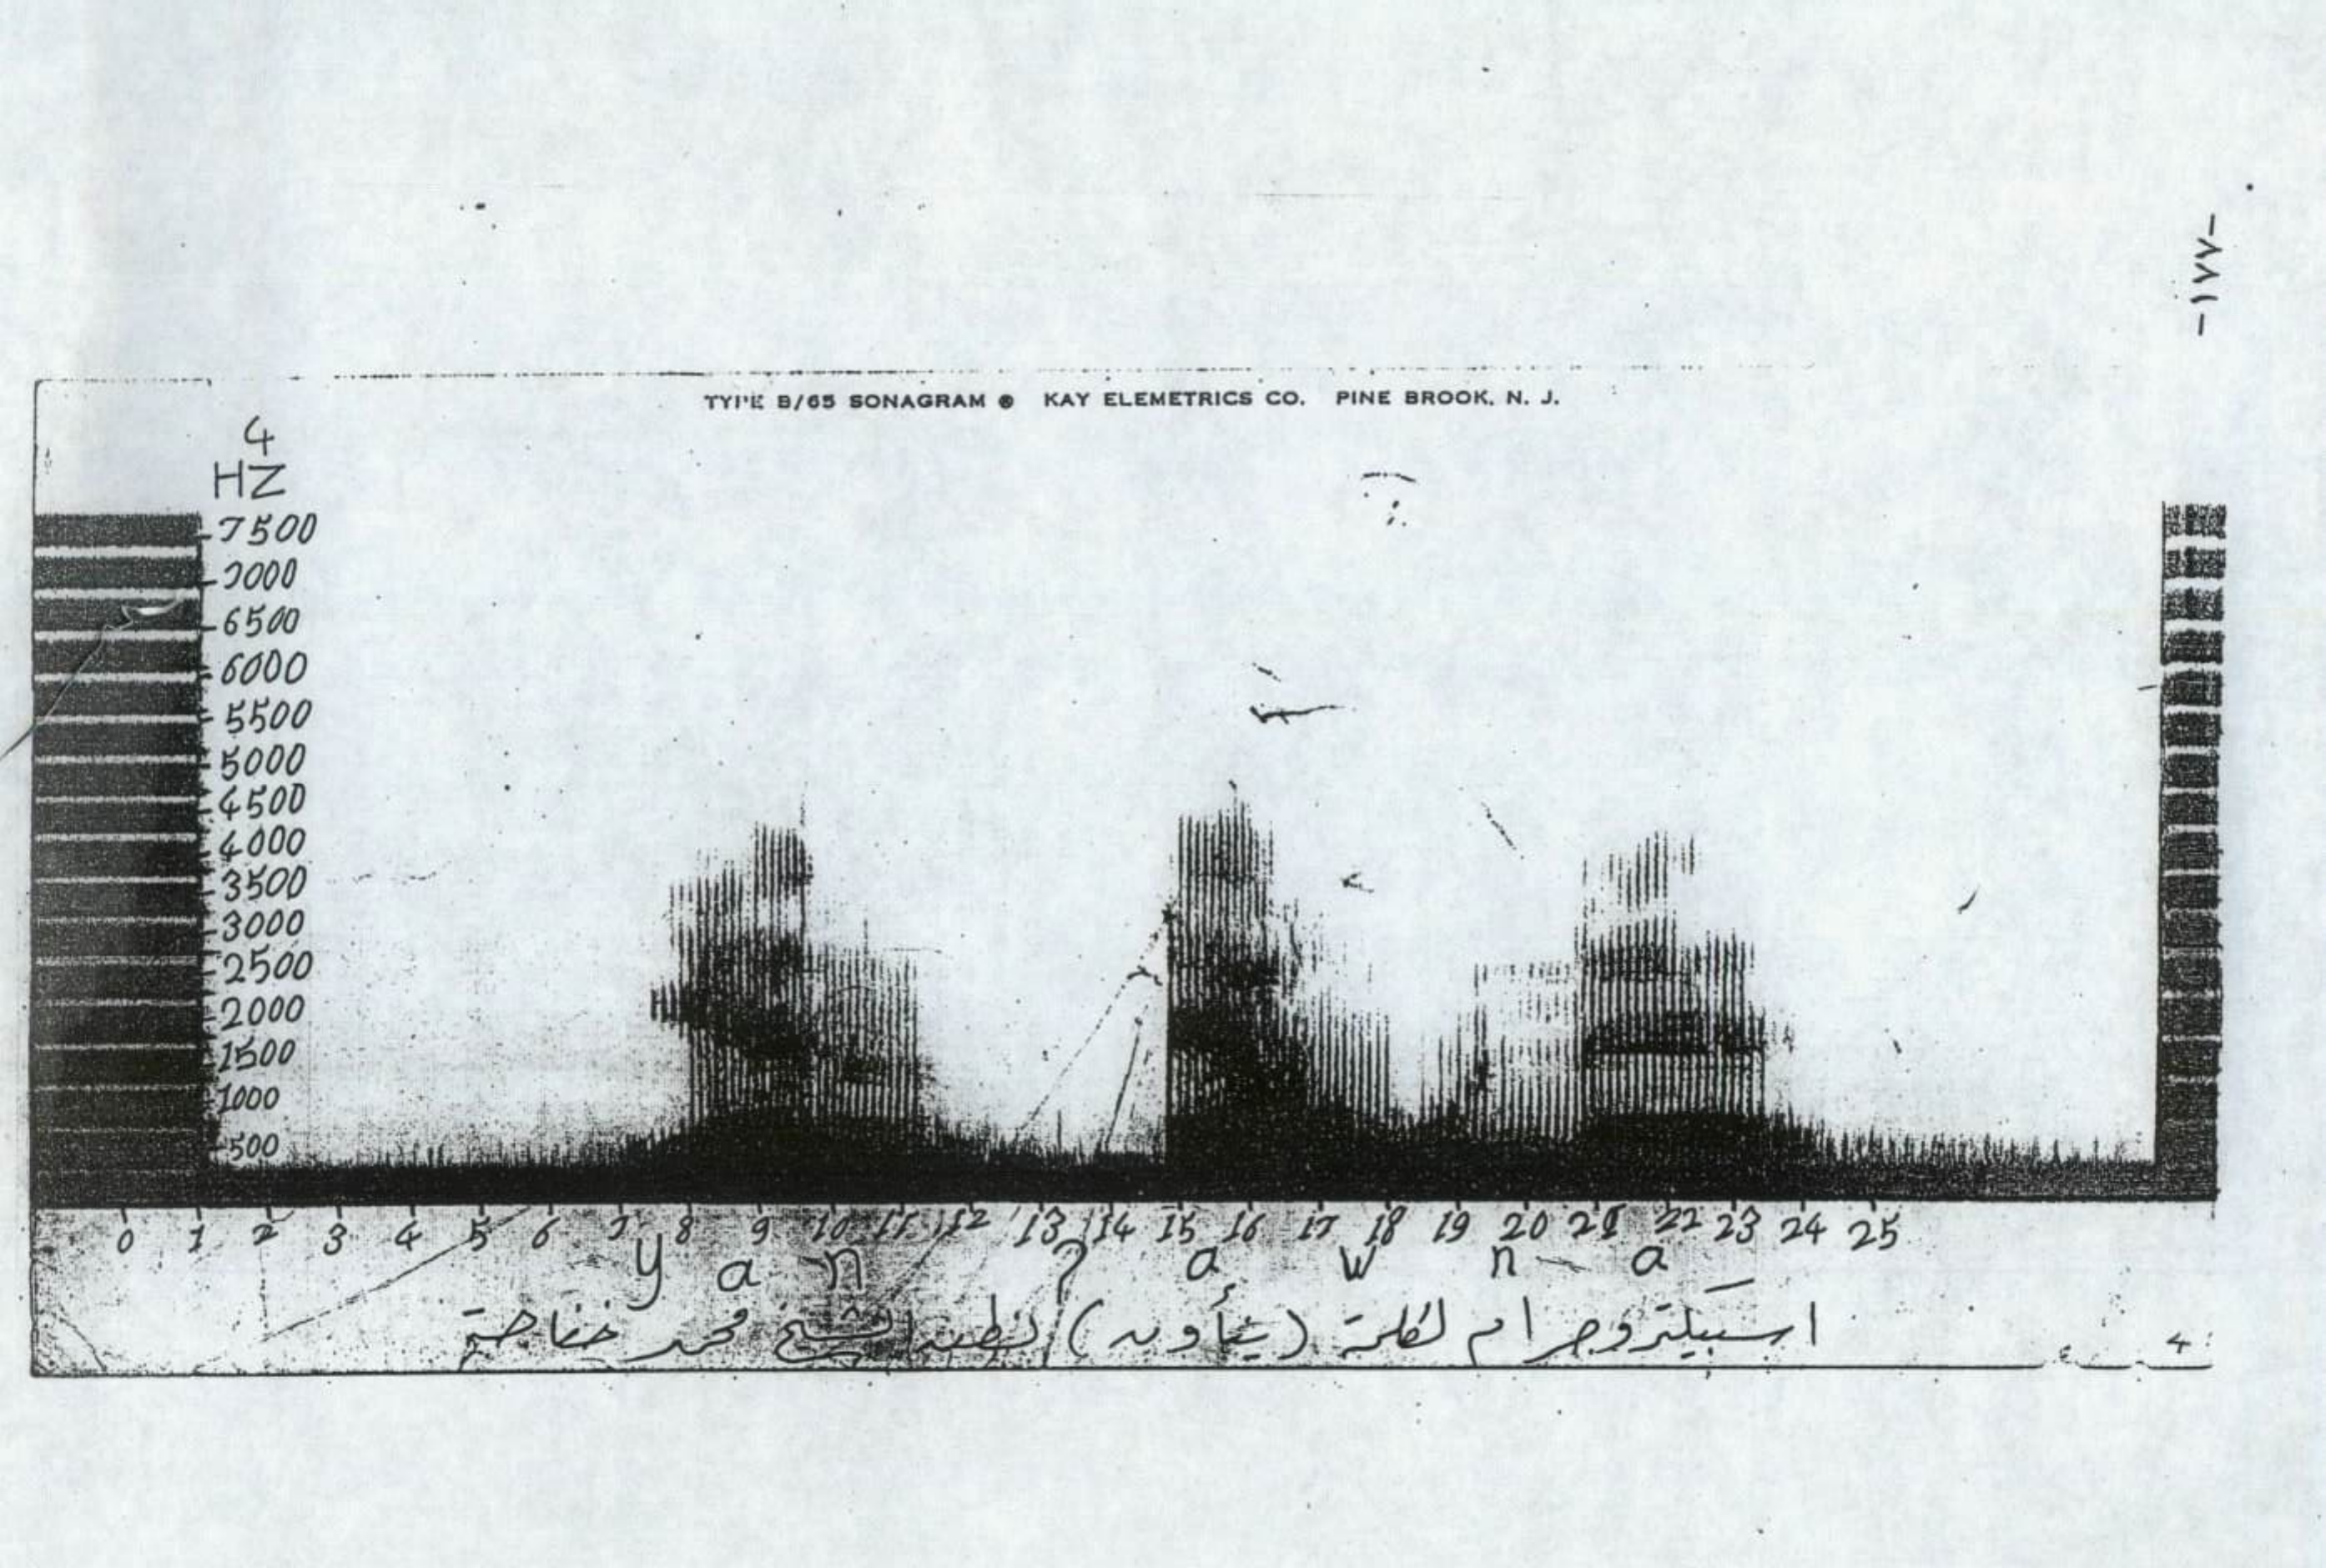 -١٧٧-
TYPE B/65 SONAGRAM ® KAY ELEMETRICS CO. PINE BROOK, N. J.
4
HZ
7500
7000
6500
6000
5500
5000
4500
4000
3500
3000
2500
2000
1500
1000
500
0 1 2 3 4 5 6 7 8 9 10 11 12 13 14 15 16 17 18 19 20 21 22 23 24 25
y a n ? a w n a
اسبيكتروجرام لكلمة (ينأون) الشيخ محمد خفاجة
4